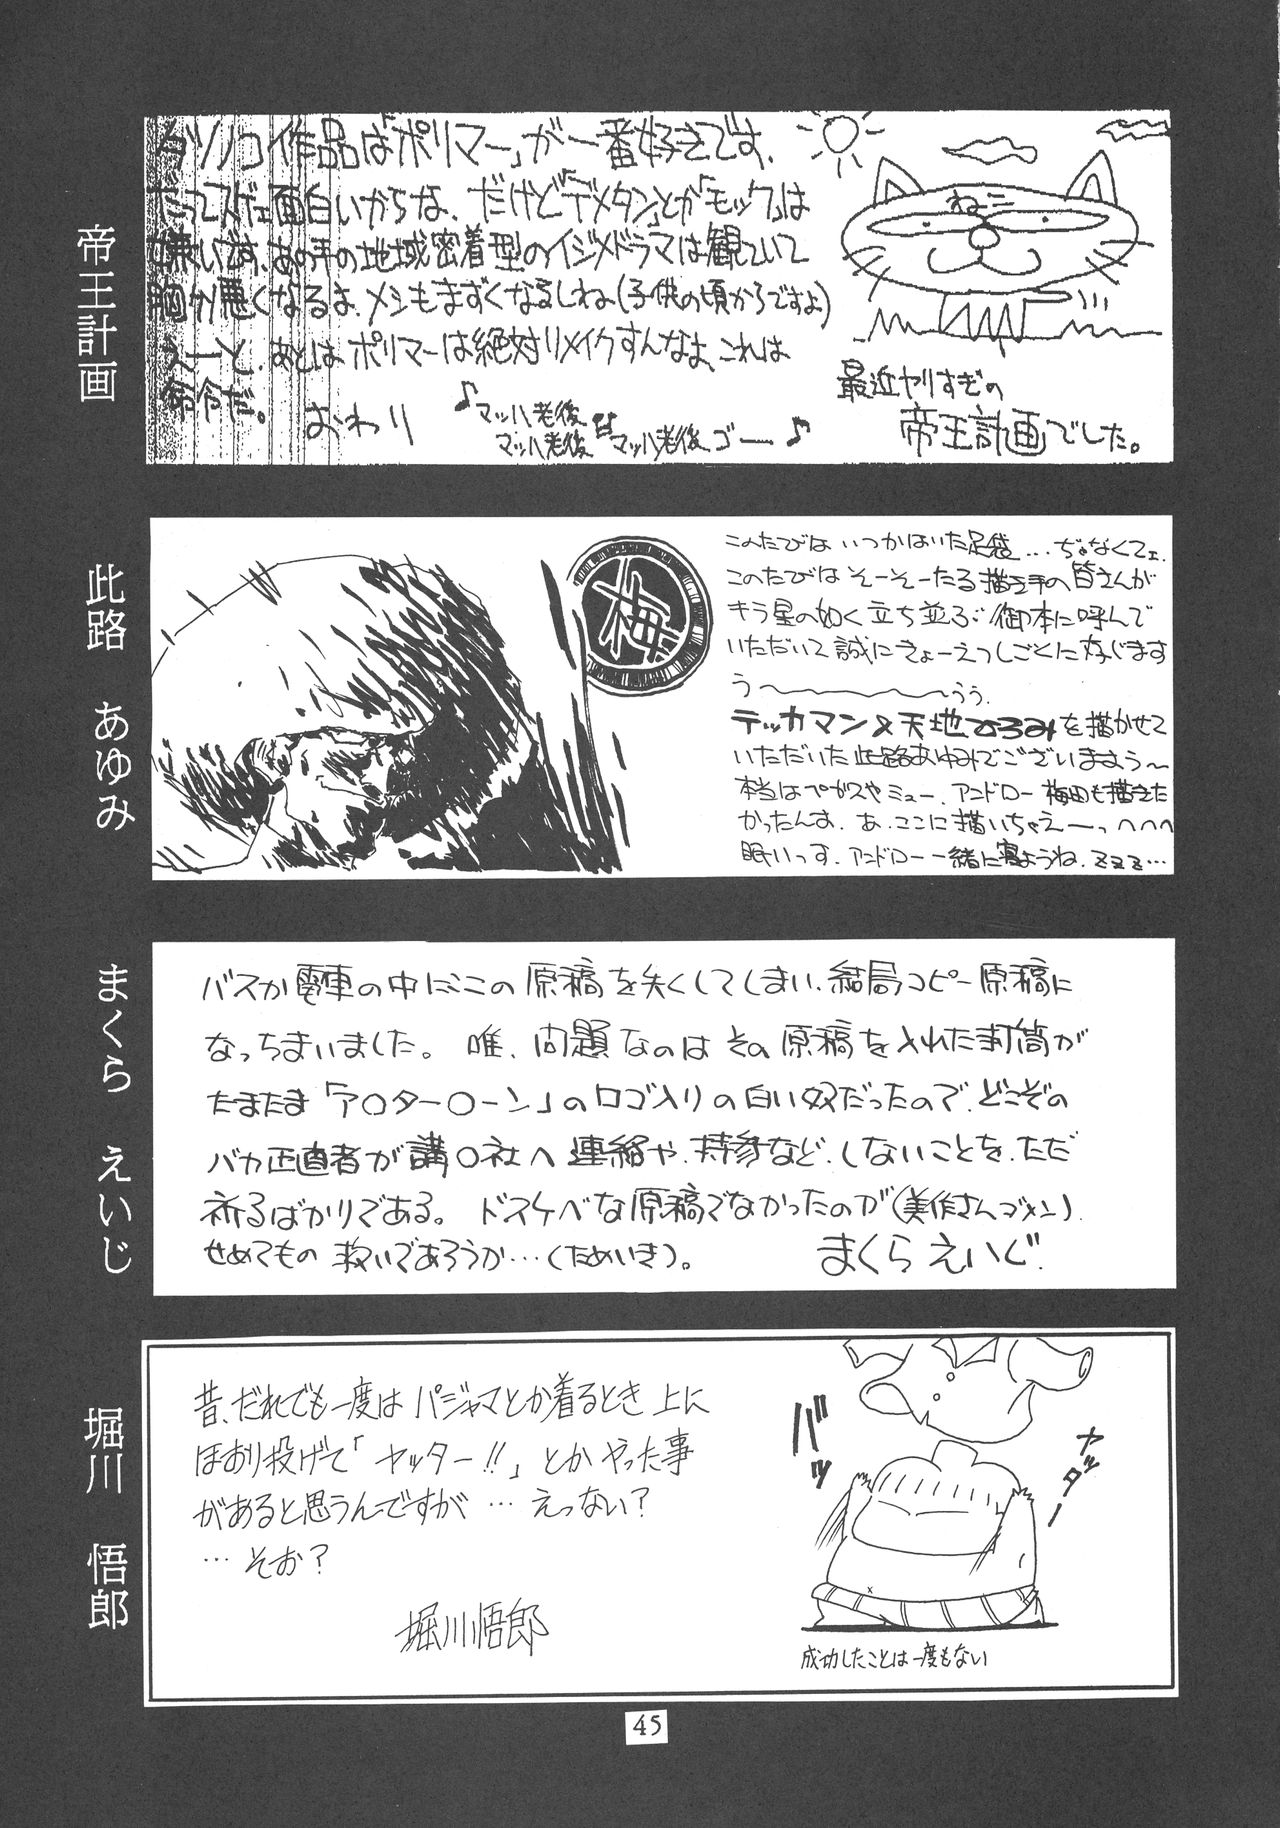 帝王計画
タツノコ作品は「ポリマー」が一番好きです、
だってスゲェ面白いからな、だけど「デメタン」とか「モック」は
嫌いです、あの手の地域密着型のイジメドラマは観ていて
胸が悪くなるよ、メシもまずくなるしね(子供の頃からですよ)
えーと、あとはポリマーは絶対リメイクすんなよ、これは
命令だ。
おわり
♪マッハ老後
マッハ老後
マッハ老後 ゴー♪
ねこ
最近ヤリすぎの
帝王計画でした。
此路 あゆみ
梅
このたびは いつかはいた足袋…ぢゃなくてェ、
このたびは そーそーたる描き手の皆さんが
キラ星の如く立ち並ぶ御本に呼んで
いただいて誠にきょーえつしごくに存じます
う〜〜〜〜〜〜うぅ
テッカマン×天地ひろみを描かせて
いただいた此路あゆみでございますぅ〜
本当はペガスやミュー、アンドロー梅田も描きた
かったんす、あ、ここに描いちゃえーっへへへ
眠いっす、アンドロー一緒に寝ようね、zzz…
まくら えいじ
バスか電車の中にこの原稿を失くしてしまい、結局コピー原稿に
なっちまいました。唯、問題なのはその原稿を入れた封筒が
たまたま「ア○ター○ーン」のロゴ入りの白い奴だったので、どこぞの
バカ正直者が講○社へ連絡や、持参など、しないことを、ただ
祈るばかりである。ドスケベな原稿でなかったのが(美作さんゴメン)、
せめてもの救いであろうか…(ためいき)。
まくらえいじ
堀川 悟郎
昔、だれでも一度はパジャマとか着るとき上に
ほおり投げて「ヤッター!!」とかやった事
があると思うんですが…えっない?
…そお?
堀川悟郎
バッ
ヤッター
成功したことは一度もない
45